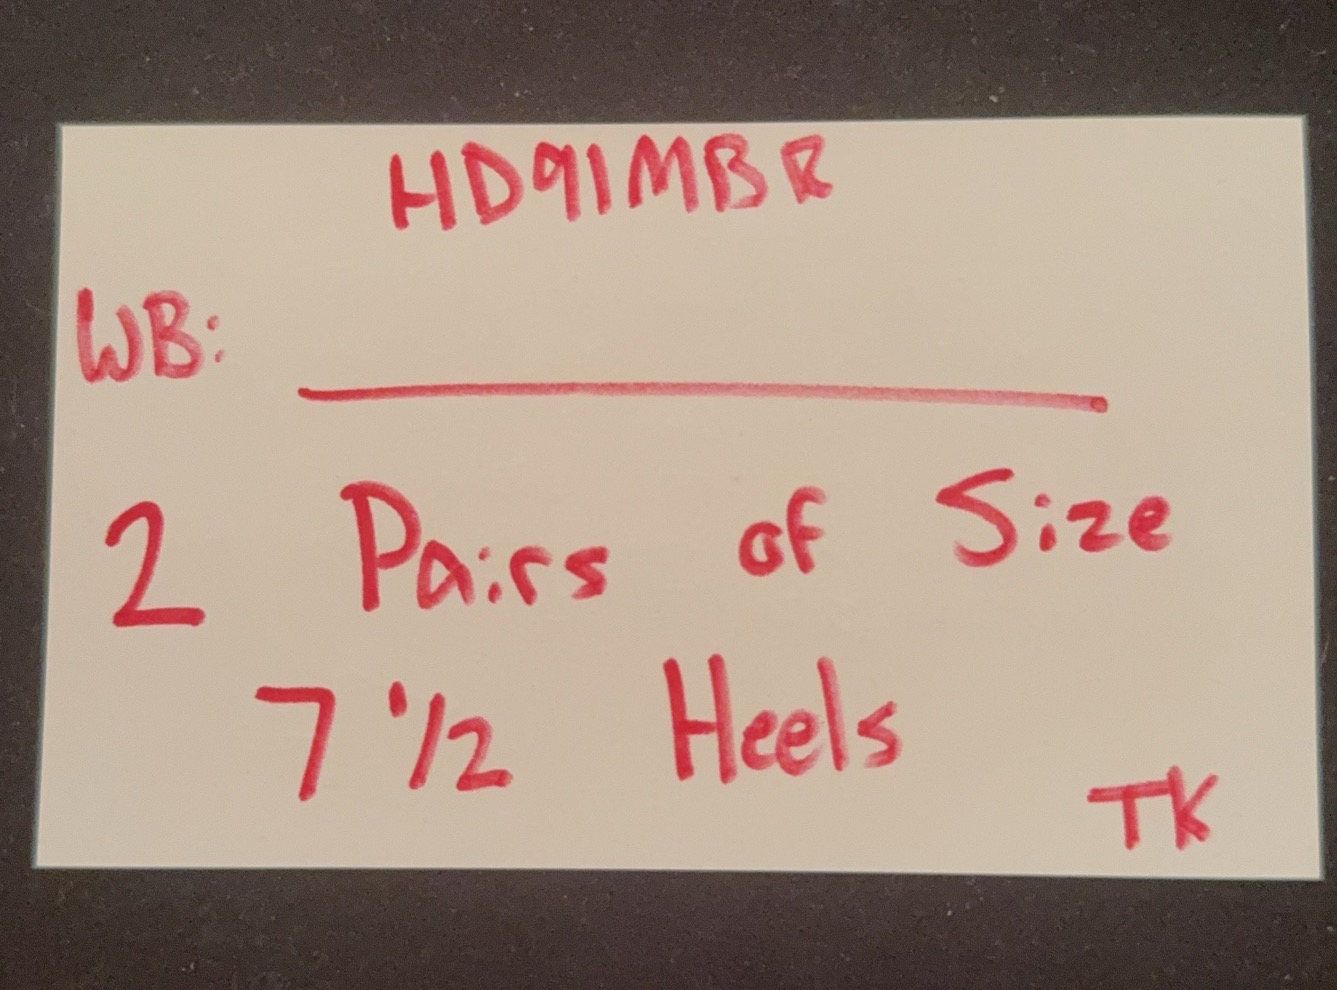 HD91MBR
WB:
2 Pairs of Size
7 1/2 Heels
TK